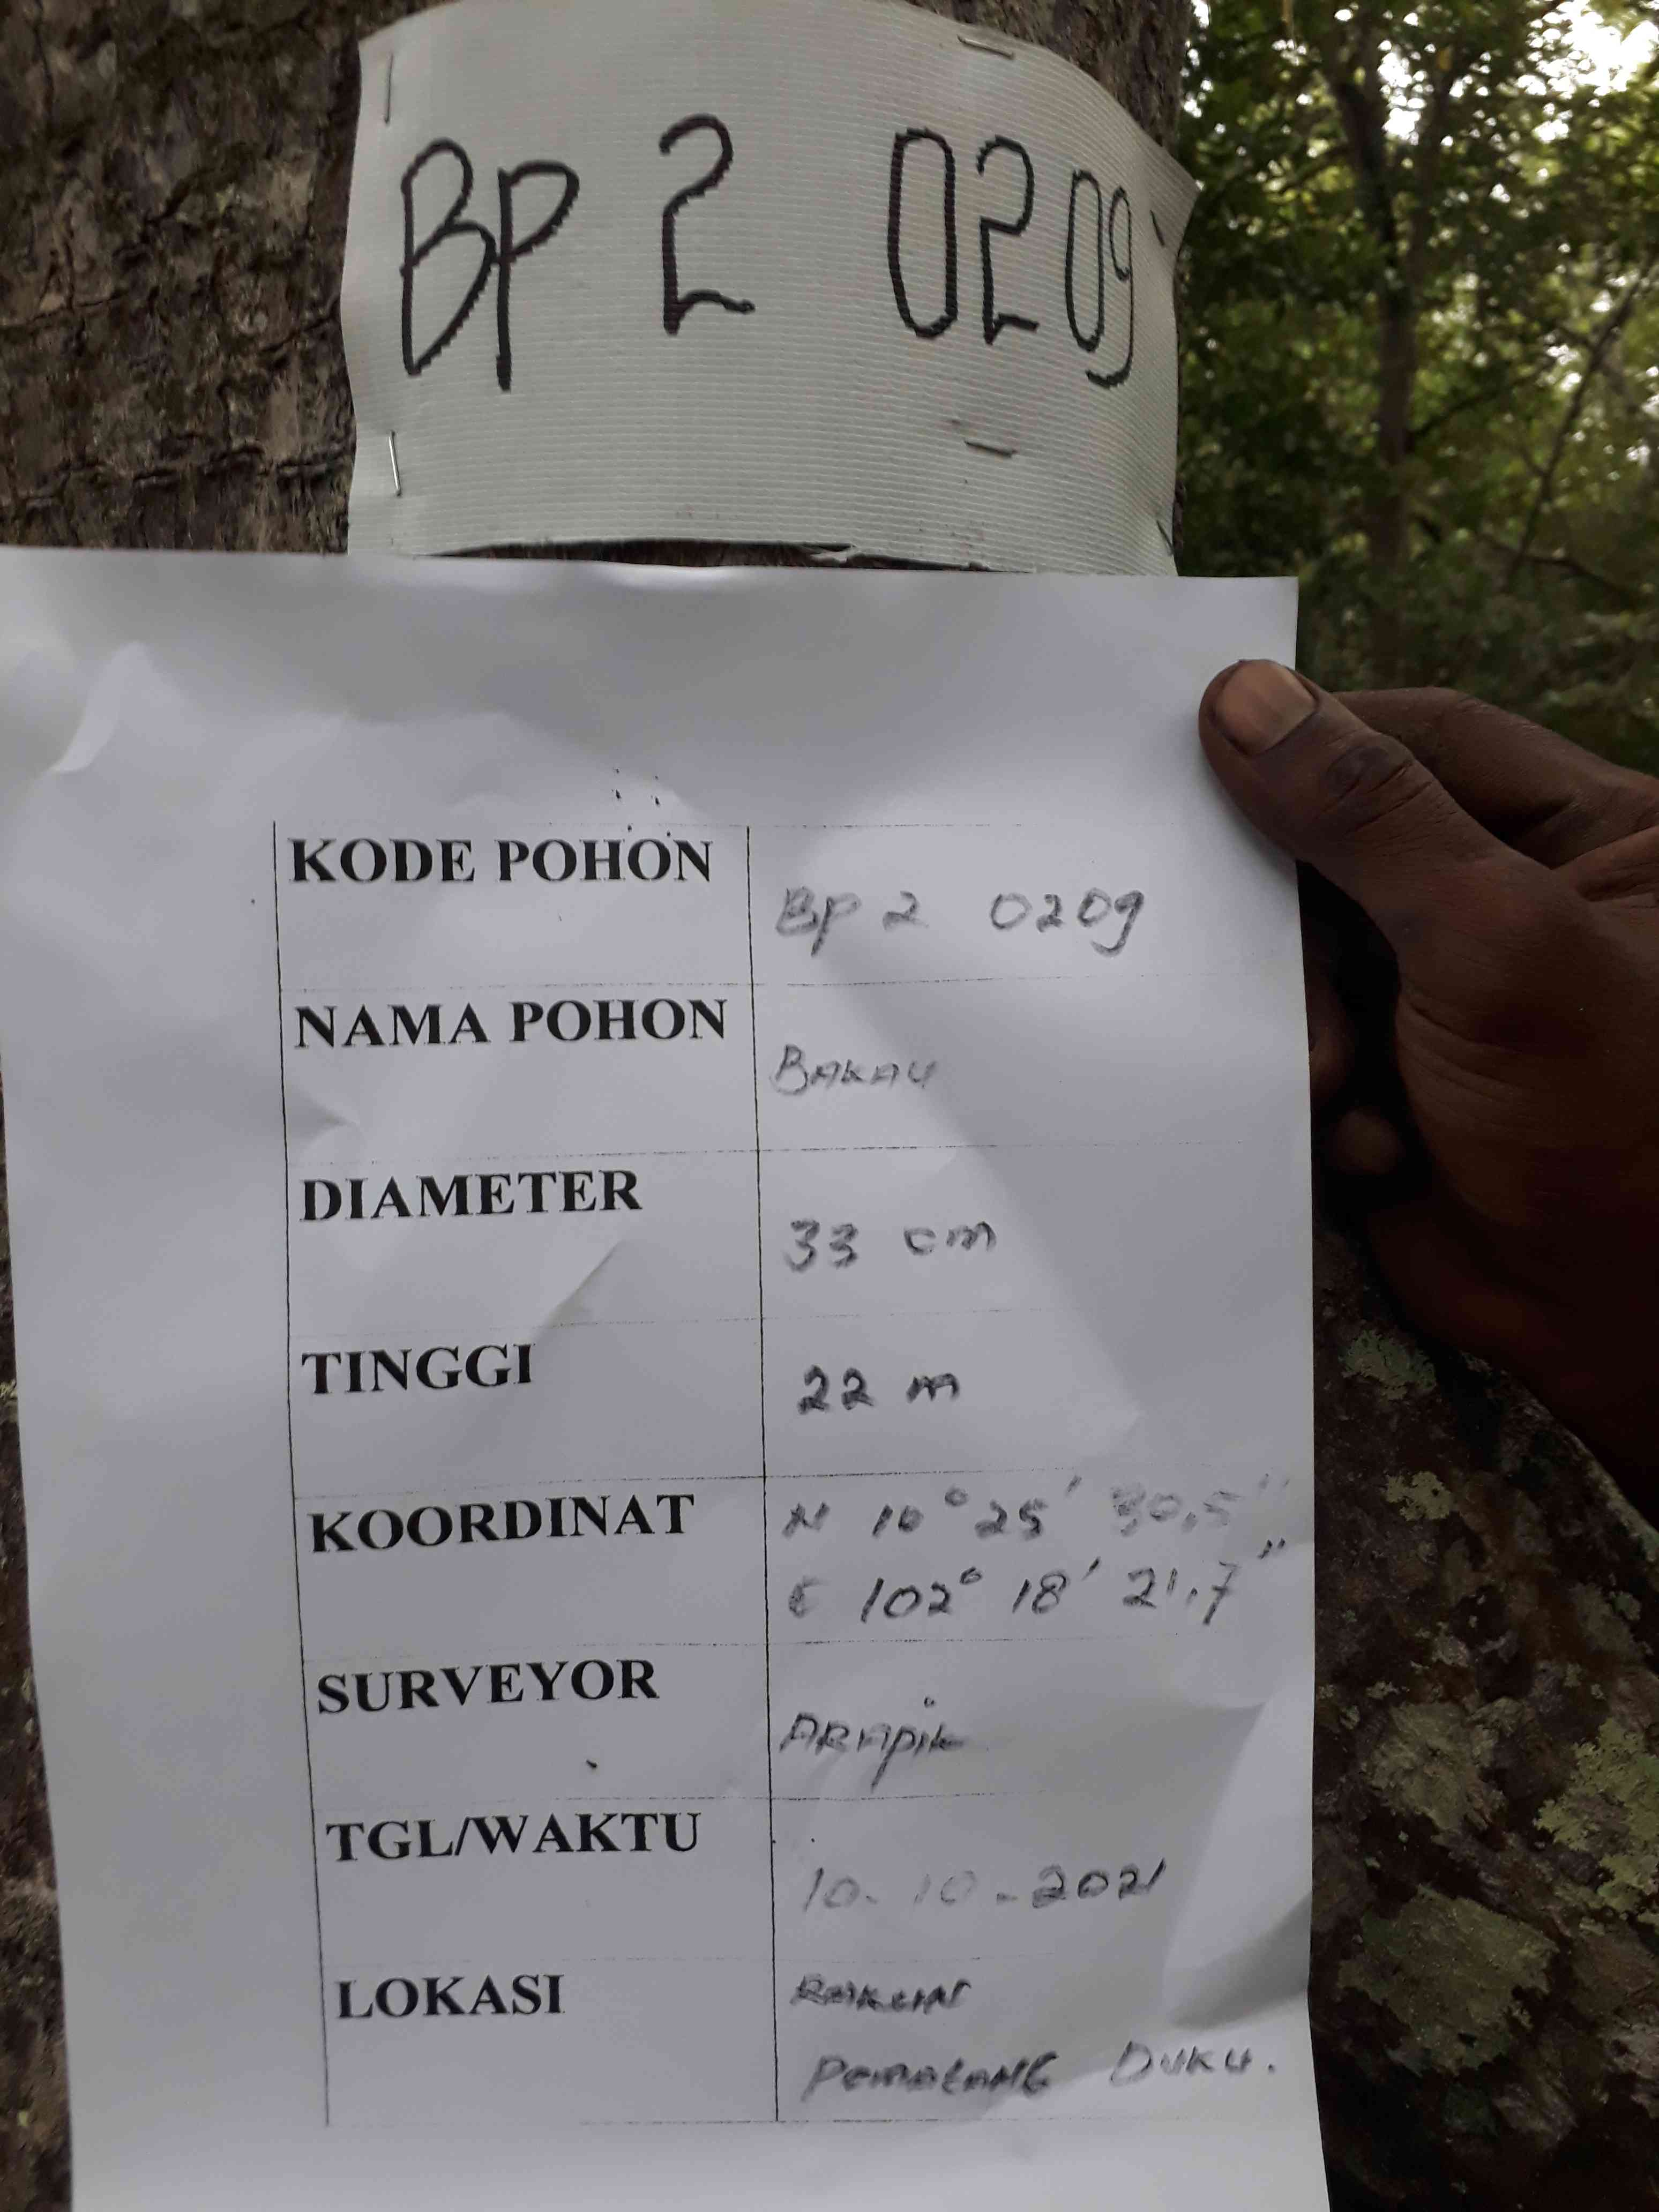 BP 2 0209
KODE POHON
BP 2 0209
NAMA POHON
BAKAU
DIAMETER
33 cm
TINGGI
22 m
KOORDINAT
N 10° 25' 30,5"
E 102° 18' 21,7"
SURVEYOR
ARApik
TGL/WAKTU
10-10-2021
LOKASI
PemAtANG DUKU.